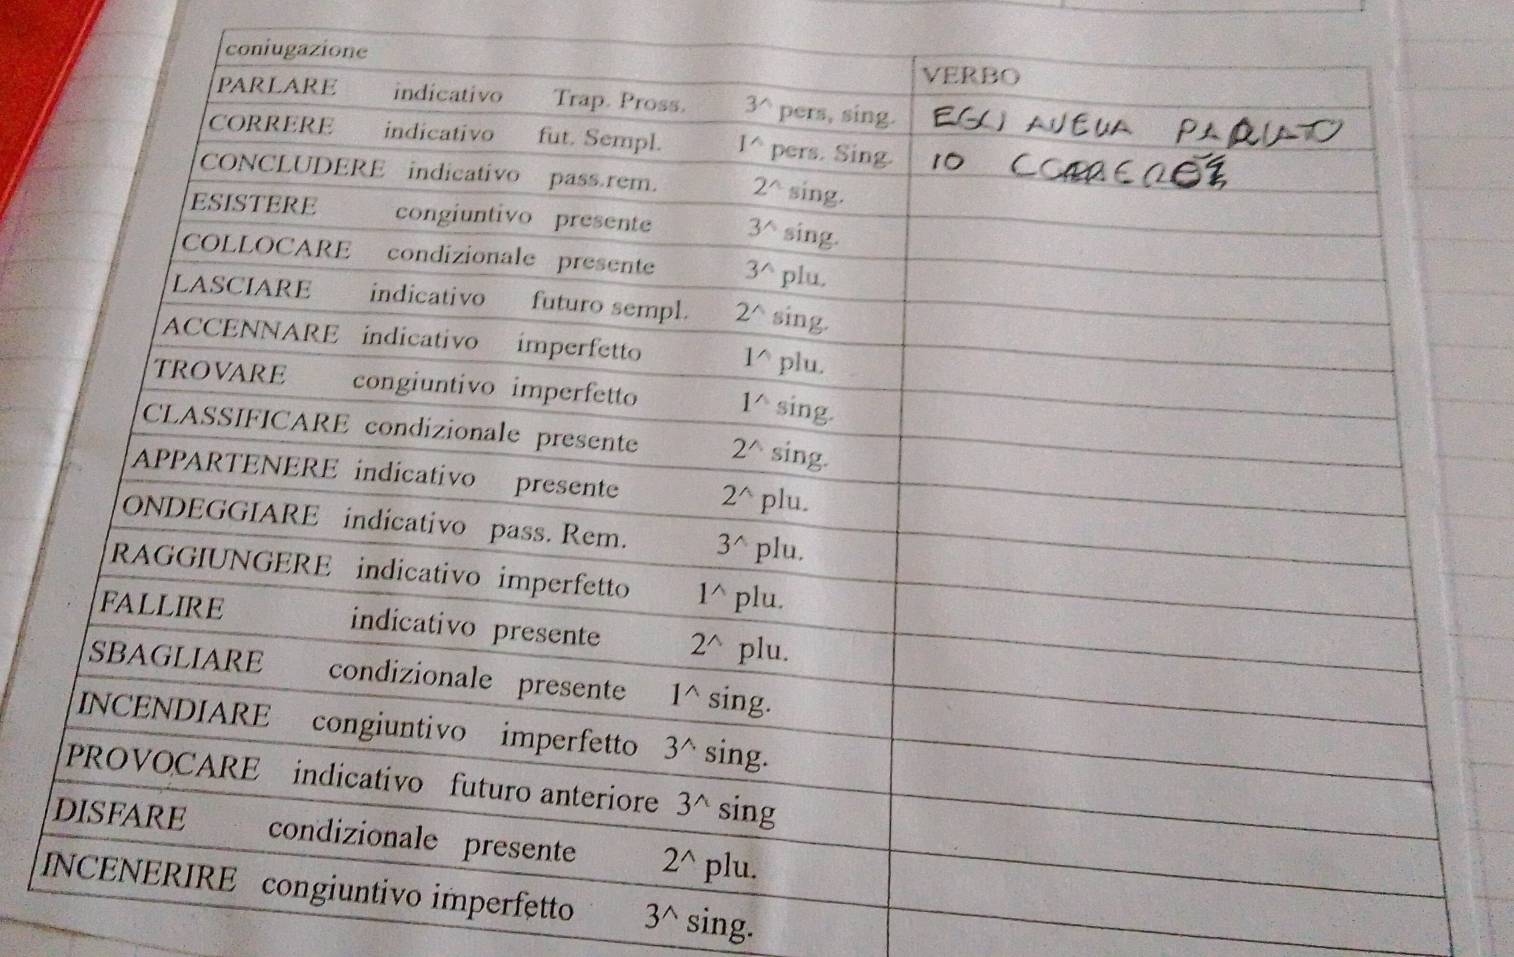 coniugazione VERBO
PARLARE indicativo Trap. Pross. 3^ pers, sing. EGLI AVEVA PARLATO
CORRERE indicativo fut. Sempl. 1^ pers. Sing. IO
CONCLUDERE indicativo pass.rem. 2^ sing.
ESISTERE congiuntivo presente 3^ sing.
COLLOCARE condizionale presente 3^ plu.
LASCIARE indicativo futuro sempl. 2^ sing.
ACCENNARE indicativo imperfetto 1^ plu.
TROVARE congiuntivo imperfetto 1^ sing.
CLASSIFICARE condizionale presente 2^ sing.
APPARTENERE indicativo presente 2^ plu.
ONDEGGIARE indicativo pass. Rem. 3^ plu.
RAGGIUNGERE indicativo imperfetto 1^ plu.
FALLIRE indicativo presente 2^ plu.
SBAGLIARE condizionale presente 1^ sing.
INCENDIARE congiuntivo imperfetto 3^ sing.
PROVOCARE indicativo futuro anteriore 3^ sing
DISFARE condizionale presente 2^ plu.
INCENERIRE congiuntivo imperfetto 3^ sing.